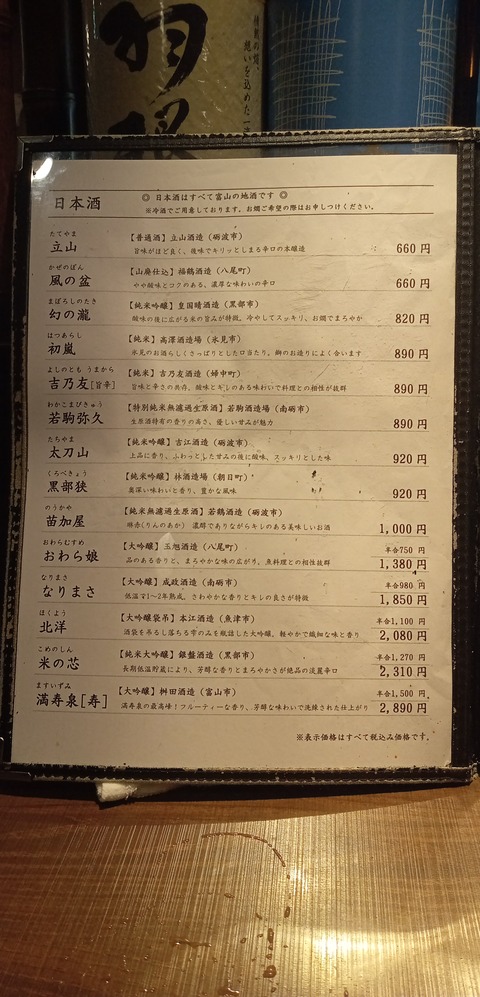 羽根
想いを込めた一
日本酒
◎ 日本酒はすべて富山の地酒です ◎
※冷酒でご用意しております。お燗ご希望の際はお申しつけください。
たてやま
立山
【普通酒】立山酒造（砺波市）
旨味がほど良く、後味でキリッとしまる辛口の本醸造
660 円
かぜのぼん
風の盆
【山廃仕込】福鶴酒造（八尾町）
やや酸味とコクのある、濃厚な味わいの辛口
660 円
まぼろしのたき
幻の瀧
【純米吟醸】皇国晴酒造（黒部市）
酸味の後に広がる米の旨みが特徴。冷やしてスッキリ、お燗でまろやか
820 円
はつあらし
初嵐
【純米】高澤酒造場（氷見市）
氷見のお酒らしくさっぱりとした口当たり。鰤のお造りによく合います
890 円
よしのとも うまから
吉乃友[旨辛]
【純米】吉乃友酒造（婦中町）
旨味と辛さの共存、酸味とキレのある味わいで料理との相性が抜群
890 円
わかこまびきゅう
若駒弥久
【特別純米無濾過生原酒】若駒酒造場（南砺市）
生原酒特有の香りの高さ、優しい甘みが魅力
890 円
たちやま
太刀山
【純米吟醸】吉江酒造（砺波市）
上品に香り、ふわっとした甘みの後に酸味、スッキリとした味
920 円
くろべきょう
黒部狭
【純米吟醸】林酒造場（朝日町）
奥深い味わいと香り、豊かな風味
920 円
のうかや
苗加屋
【純米無濾過生原酒】若鶴酒造（砺波市）
琳赤(りんのあか) 濃醇でありながらキレのある美味しいお酒
1,000 円
おわらむすめ
おわら娘
【大吟醸】玉旭酒造（八尾町）
品のある香りと、まろやかな味の広がり。魚料理との相性抜群
半合750 円
1,380 円
なりまさ
なりまさ
【大吟醸】成政酒造（南砺市）
低温で1～2年熟成。さわやかな香りとキレの良さが特徴
半合980 円
1,850 円
ほくよう
北洋
【大吟醸袋吊】本江酒造（魚津市）
酒袋を吊るし落ちる雫のみを瓶詰した大吟醸。軽やかで繊細な味と香り
半合1,100 円
2,080 円
こめのしん
米の芯
【純米大吟醸】銀盤酒造（黒部市）
長期低温貯蔵により、芳醇な香りとまろやかさが絶品の淡麗辛口
半合1,270 円
2,310 円
ますいずみ
満寿泉[寿]
【大吟醸】桝田酒造（富山市）
満寿泉の最高峰！フルーティーな香り、芳醇な味わいで洗練された仕上がり
半合1,500 円
2,890 円
※表示価格はすべて税込み価格です。